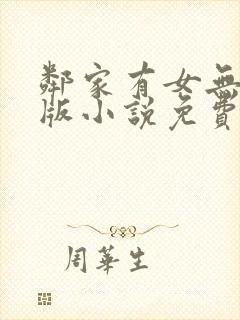 鄰家有女無
版小說免費
周華生